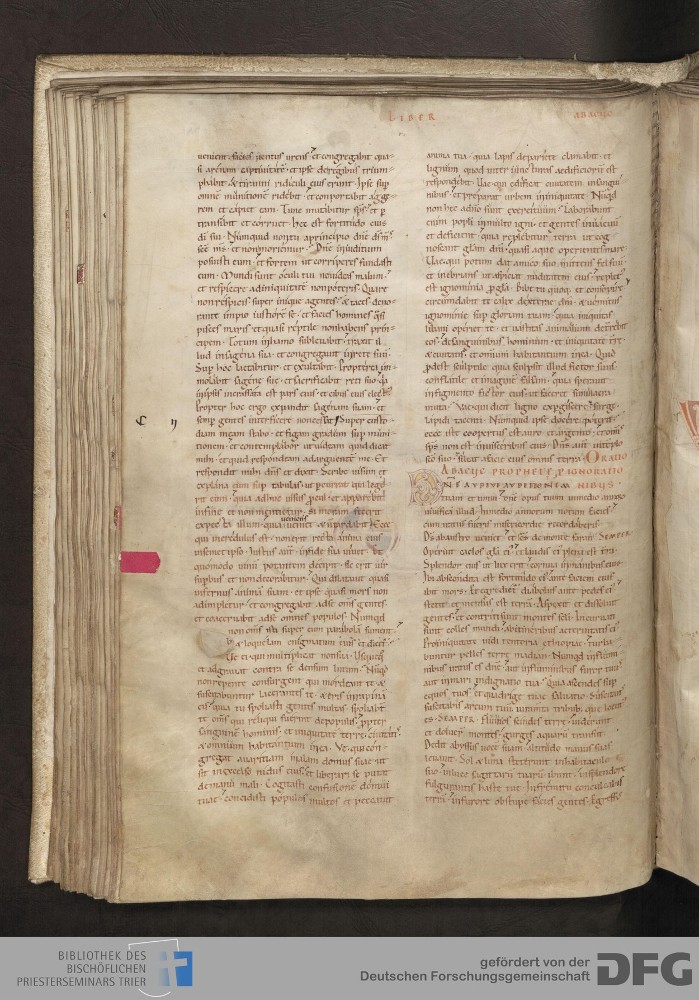 LIBER
ABACUC
uenient facies uentus urens et congregabit qua
si arenam captiuitatē et ipse de regibus trium
phabit & tiranni ridiculi eius erunt Ipse sup
omnē munitionē ridebit et comportabit aggere
rem et capiet eam Tunc mutabitur sps et p
transibit et corruet hec est fortitudo eius
di sui Numquid non tu a principio dne ds ms
scē ms et non moriemur Dne in iuditium
posuisti eum et fortem ut corriperes fundasti
eum Mundi sunt oculi tui ne uideas malum
et respicere ad iniquitatē non poteris Quare
non respicis super inique agentes & taces deuo
rante impio iustiorē se et facies homines
pisces maris et quasi reptile non habens prin
cipem Totum in hamo subleuabit traxit il
lud in sagena sua et congregauit in rete suū
Sup hoc laetabitur et exultabit Propterea im
molabit sagene sue et sacrificabit reti suo
in ipsis incrassata est pars eius et cibus eius elect
Propter hoc ergo expandit sagenam suam et
semp gentes interficere non cessat Super custo
diam meam stabo et figam gradum sup muni
tionem et contemplabor ut uideam quid dicat
mihi et quid respondeam ad arguentē me Et
respondit mihi dns et dixit Scribe uisum et
explana eum sup tabulas ut percurrat qui lege
rit eum quia adhuc uisus pcul et apparebit
in finē et non mentietur si moram fecerit
expecta illum quia ueniens ueniet & non tardabit Ecce
qui incredulus est non erit recta anima eius
in semet ipso Iustus aut in fide sua uiuet
quomodo uinū potantem decipit sic erit uir
supbus et non decorabitur Qui dilatauit quasi
infernus animā suam et ipse quasi mors non
adimpletur et congregabit ad se oms gentes
et coaceruabit ad se omnes populos Numqd
non oms isti super eum parabolā sument
& loquelam enigmatum eius et dicet
Ue ei qui multiplicat non sua Usquequo
et adgrauat contra se densum lutum Numqd
non repente consurgent qui mordeant te &
suscitabuntur lacerantes te & eris in rapinā
eis quia tu spoliasti gentes multas spoliabt
te oms qui reliqui fuerint de populis ppter
sanguinē hominis et iniquitatē terre ciuitatis
& omnium habitantium in ea Ve qui con
gregat auaritiam malam domui suae ut
sit in excelso nidus eius et liberari se putat
de manu mali Cogitasti confusionē domui
tuae concidisti populos multos et peccauit
anima tua quia lapis de pariete clamabit et
lignum quod inter iuncturas aedificiorū est
respondebit Uae qui edificat ciuitatem in sangui
nibus et preparat urbem in iniquitate Nūqd
non hec a dno sunt exercituum Laborabunt
enim popli in multo igni et gentes in uacuū
et deficient quia replebitur terra ut cog
noscant gloriam dni quasi aque operientes mare
Uae qui potum dat amico suo mittens fel suū
et inebrians ut aspiciat nuditatem eius repletus
est ignominia p gla bibe tu quoq et consopire
circumdabit te calix dextere dni & uomitus
ignominie sup gloriam tuam quia iniquitas
libani operiet te et uastitas animalium deterrebit
eos de sanguinibus hominum et iniquitate tre
& ciuitatis et omniū habitantium in ea Quid
pdest sculptile quia sculpsit illud fictor suus
conflatile et imaginē falsam quia sperauit
in figmento fictor eius ut faceret simulacra
muta Uae qui dicit ligno expgiscere surge
lapidi tacenti Numquid ipse docere poterit
ecce iste coopertus est auro et argento et omis
sps non est in uisceribus eius Dns aut in templo
sco suo sileat a facie eius omnis terra ORATIO
ABACUC PROPHETE P IGNORATIO
NIBUS
DNE AUDIUI AUDITIONEM
tuam et timui dne opus tuum in medio annorū
uiuifica illud In medio annorum notum facies
cum iratus fueris misericordie recordaberis
Ds ab austro ueniet et scs de monte faran SEMPER
Operuit caelos gla ei et laudis ei plena est tra
Splendor eius ut lux erit cornua in manibus eius
Ibi abscondita est fortitudo ei ante faciem eius
ibit mors Et egredietur diabolus ante pedes ei
stetit et mensus est terrā Aspexit et dissoluit
gentes et contriti sunt montes scli Incuruati
sunt colles mundi ab itineribus aeternitatis ei
P iniquitate uidi tentoria ethiopiae turba
buntur pelles terre madian Numqd in flumi
nibus iratus es dne aut in fluminibus furor tuus
aut in mari indignatio tua Qui ascendes sup
equos tuos et quadrige tuae saluatio Suscitans
suscitabis arcum tuū iuramta tribub que locut
es SEMPER Fluuios scindes terre uiderunt
et doluer montes gurges aquarū transiit
Dedit abyssus uocē suam altitudo manus suas
leuauit Sol & luna steterunt in habitaculo
suo in luce sagittarū tuarū ibunt in splendore
fulgurantis haste tue In fremitu conculcabis
terrā in furore obstupefacies gentes Egressus
BIBLIOTHEK DES
BISCHÖFLICHEN
PRIESTERSEMINARS TRIER
gefördert von der
Deutschen Forschungsgemeinschaft
DFG